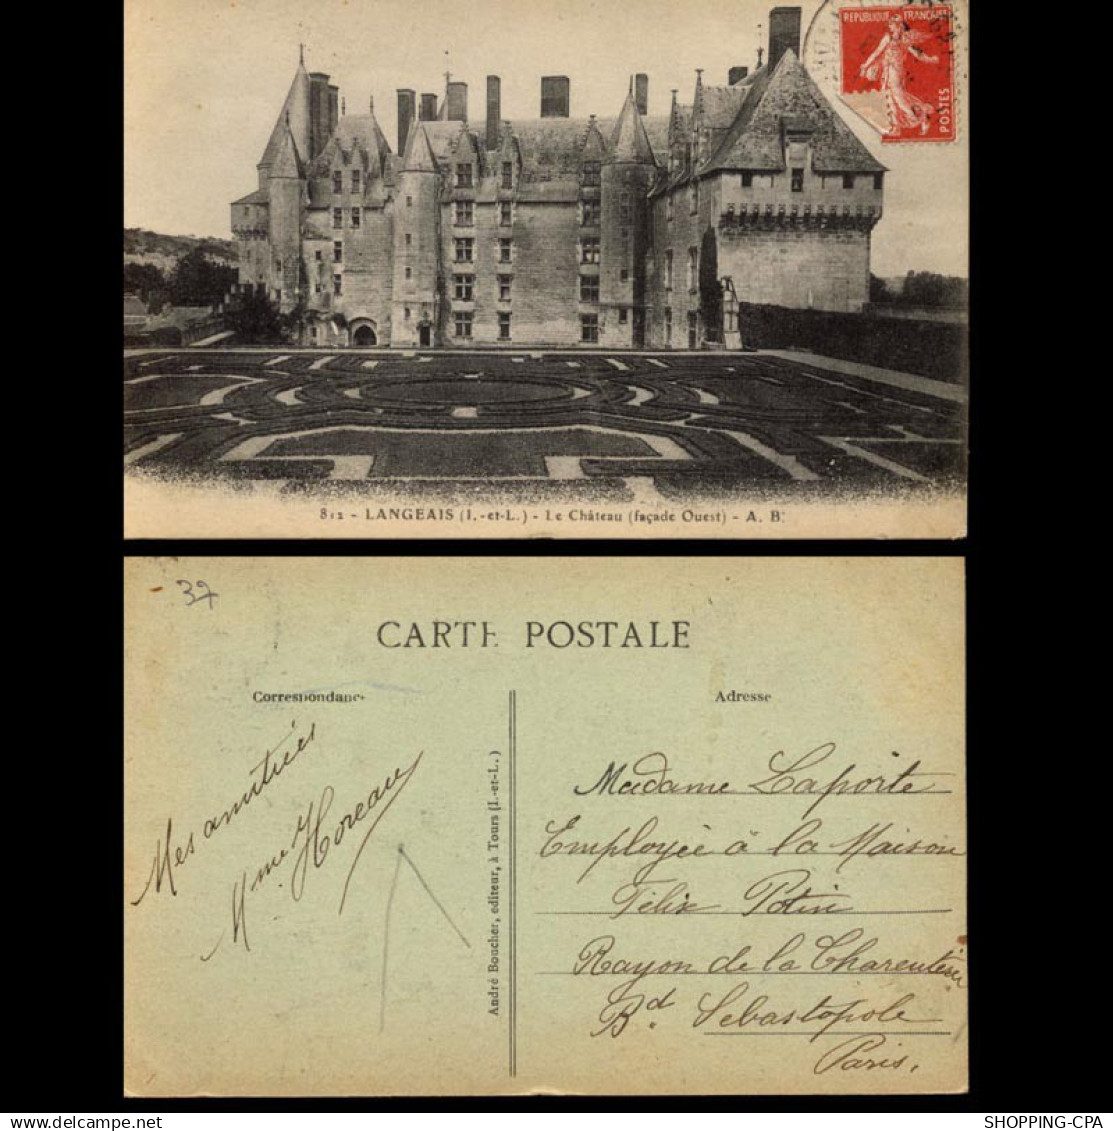 REPUBLIQUE FRANÇAISE
POSTES
812 - LANGEAIS (I.-et-L.) - Le Château (façade Ouest) - A. B.
37
CARTE POSTALE
Correspondance
Adresse
Mes amitiés
Mme Horeau
André Boucher, editeur, à Tours (I.-et-L.)
Madame Laporte
Employée à la Maison
Félix Potin
Rayon de la Charcuterie
Bd. Sebastopole
Paris.
SHOPPING-CPA